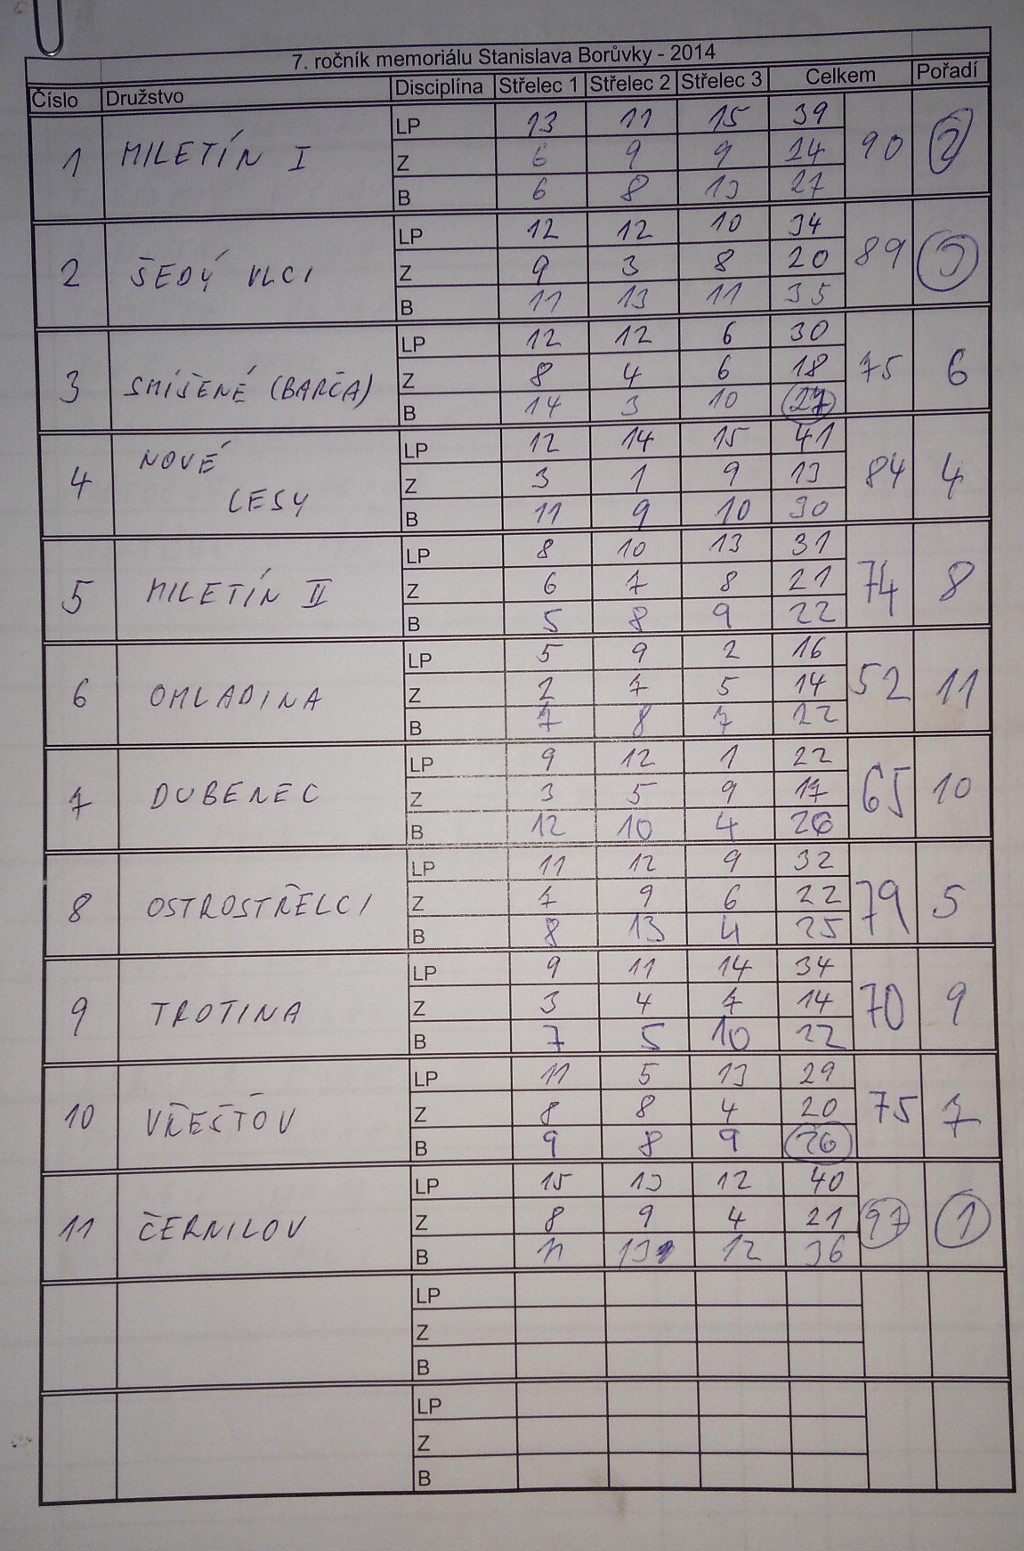 7. ročník memoriálu Stanislava Borůvky - 2014
Číslo Družstvo Disciplína Střelec 1 Střelec 2 Střelec 3 Celkem Pořadí
1 MILETÍN I 90 2
LP 13 11 15 39
Z 6 9 9 24
B 6 8 13 27
2 ŠEDÝ VLCI 89 3
LP 12 12 10 34
Z 9 3 8 20
B 11 13 11 35
3 SMÍŠENÉ (BARČA) 75 6
LP 12 12 6 30
Z 8 4 6 18
B 14 3 10 27
4 NOVÉ 84 4
LESY
LP 12 14 15 41
Z 3 1 9 13
B 11 9 10 30
5 MILETÍN II 74 8
LP 8 10 13 31
Z 6 7 8 21
B 5 8 9 22
6 OMLADINA 52 11
LP 5 9 2 16
Z 2 7 5 14
B 7 8 7 22
7 DUBENEC 65 10
LP 9 12 1 22
Z 3 5 9 17
B 12 10 4 26
8 OSTROSTŘELCI 79 5
LP 11 12 9 32
Z 7 9 6 22
B 8 13 4 25
9 TROTINA 70 9
LP 9 11 14 34
Z 3 4 7 14
B 7 5 10 22
10 VŘEŠŤOV 75 7
LP 11 5 13 29
Z 8 8 4 20
B 9 8 9 26
11 ČERNILOV 97 1
LP 15 13 12 40
Z 8 9 4 21
B 11 13 12 36
LP
Z
B
LP
Z
B